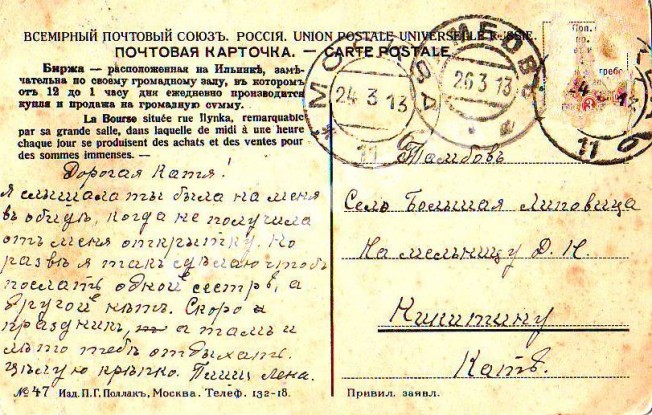 ВСЕМІРНЫЙ ПОЧТОВЫЙ СОЮЗЪ. РОССІЯ. UNION POSTALE UNIVERSELLE RUSSIE.
ПОЧТОВАЯ КАРТОЧКА. — CARTE POSTALE
Биржа — расположенная на Ильинкѣ, замѣ-
чательна по своему громадному залу, въ которомъ
отъ 12 до 1 часу дня ежедневно производится
купля и продажа на громадную сумму.
La Bourse située rue Ilynka, remarquable
par sa grande salle, dans laquelle de midi à une heure
chaque jour se produisent des achats et des ventes pour
des sommes immenses. —
МОСКВА
24 3 13
11
26 3 13
24 13
11
Дорогая Катя!
Я слышала ты была на меня
въ обидѣ, когда не получила
отъ меня открытку. Но
развѣ я такъ сдѣлаю чтобъ
послать одной сестрѣ, а
другой нѣтъ. Скоро
праздник, а тамъ и
лѣто тебѣ отдыхать.
Цѣлую крѣпко. Пиши Лена.
Тамбовъ
Село Большая Липовица
На мельницу Д. Н.
Никитину
Катѣ.
№ 47 Изд. П. Г. Поллакъ, Москва. Телеф. 132-18.
Привил. заявл.